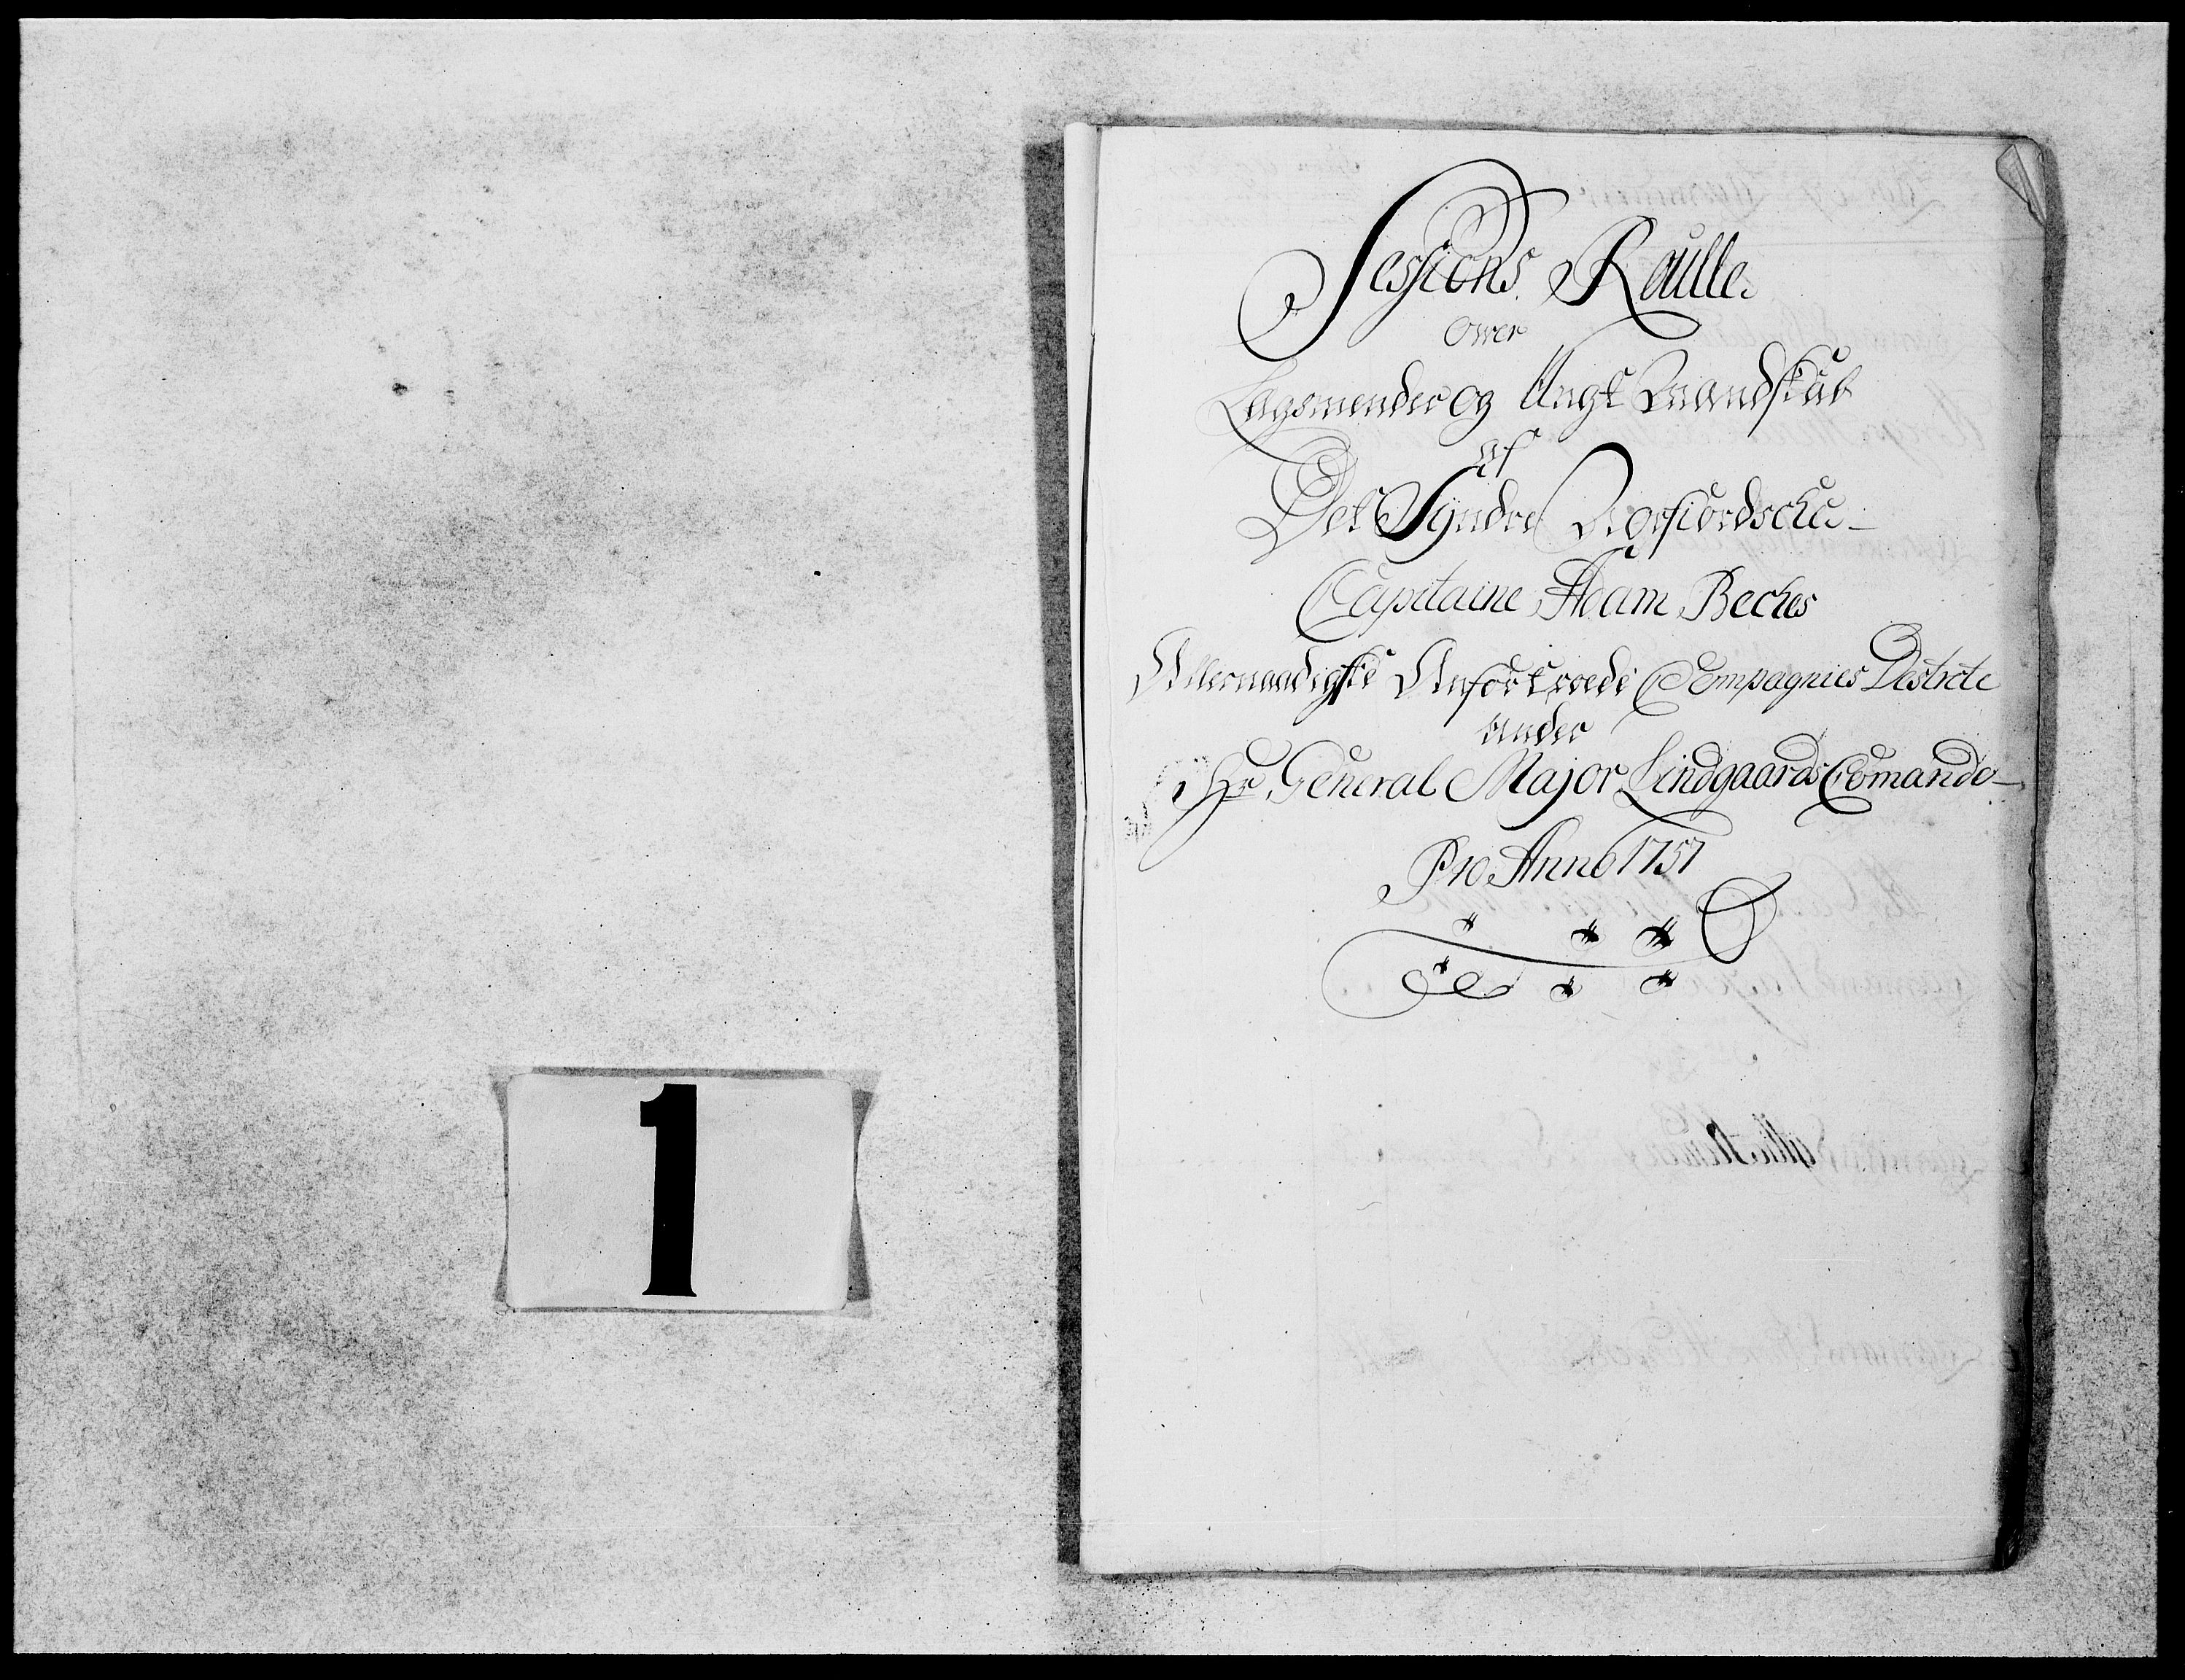 1
Sessions Roulle
Over
Lagsmender og Ungt Mandskab
af
Det Syndre Norfiordsche
Capitaine Adam Beches
Allernaadigste Anfortroede Compagnies Districte
under
Hr General Major Lindgaards Comando
Pro Anno 1757